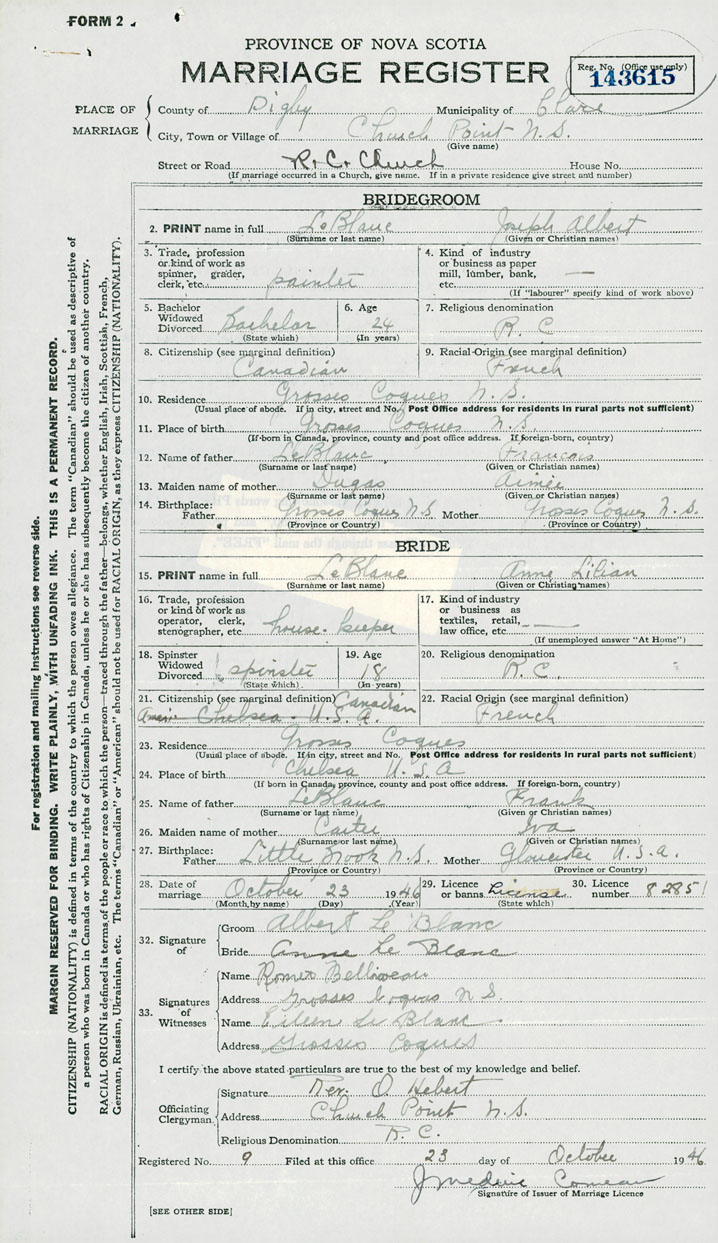 FORM 2
PROVINCE OF NOVA SCOTIA
MARRIAGE REGISTER
Reg. No. (Office use only)
143615
PLACE OF MARRIAGE
County of Digby Municipality of Clare
City, Town or Village of Church Point N.S.
(Give name)
Street or Road R.C. Church House No.
(If marriage occurred in a Church, give name. If in a private residence give street and number)
BRIDEGROOM
2. PRINT name in full LeBlanc Joseph Albert
(Surname or last name) (Given or Christian names)
3. Trade, profession or kind of work as spinner, grader, clerk, etc. painter
4. Kind of industry or business as paper mill, lumber, bank, etc. —
(If "labourer" specify kind of work above)
5. Bachelor Widowed Divorced Bachelor
(State which)
6. Age 24
(In years)
7. Religious denomination R. C
8. Citizenship (see marginal definition) Canadian
9. Racial-Origin (see marginal definition) French
10. Residence Grosses Coques N.S.
(Usual place of abode. If in city, street and No. Post Office address for residents in rural parts not sufficient)
11. Place of birth Grosses Coques N.S.
(If born in Canada, province, county and post office address. If foreign-born, country)
12. Name of father LeBlanc Francois
(Surname or last name) (Given or Christian names)
13. Maiden name of mother Dugas Aimée
(Surname or last name) (Given or Christian names)
14. Birthplace: Father Grosses Coques N.S Mother Grosses Coques N.S.
(Province or Country) (Province or Country)
BRIDE
15. PRINT name in full LeBlanc Anne Lilian
(Surname or last name) (Given or Christian names)
16. Trade, profession or kind of work as operator, clerk, stenographer, etc. house-keeper
17. Kind of industry or business as textiles, retail, law office, etc. —
(If unemployed answer "At Home")
18. Spinster Widowed Divorced spinster
(State which)
19. Age 18
(In years)
20. Religious denomination R.C.
21. Citizenship (see marginal definition) Canadian
Chelsea - U.S.A.
22. Racial Origin (see marginal definition) French
23. Residence Grosses Coques
(Usual place of abode. If in city, street and No. Post Office address for residents in rural parts not sufficient)
24. Place of birth Chelsea U.S.A
(If born in Canada, province, county and post office address. If foreign-born, country)
25. Name of father LeBlanc Frank
(Surname or last name) (Given or Christian names)
26. Maiden name of mother Carter Iva
(Surname or last name) (Given or Christian names)
27. Birthplace: Father Little Brook N.S. Mother Gloucester U.S.A.
(Province or Country) (Province or Country)
28. Date of marriage October 23 1946
(Month by name) (Day) (Year)
29. Licence or banns License
(State which)
30. Licence number 82851
32. Signature of
Groom Albert Le Blanc
Bride Anne Le Blanc
33. Signatures of Witnesses
Name Romeo Belliveau
Address Grosses Coques N S.
Name Eileen Le Blanc
Address Grosses Coques
I certify the above stated particulars are true to the best of my knowledge and belief.
Officiating Clergyman
Signature Rev. O. Hebert
Address Church Point N.S.
Religious Denomination R.C.
Registered No. 9 Filed at this office 23 day of October 1946
Comeau
Signature of Issuer of Marriage Licence
[SEE OTHER SIDE]
For registration and mailing instructions see reverse side.
MARGIN RESERVED FOR BINDING. WRITE PLAINLY, WITH UNFADING INK. THIS IS A PERMANENT RECORD.
CITIZENSHIP (NATIONALITY) is defined in terms of the country to which the person owes allegiance. The term "Canadian" should be used as descriptive of
a person who was born in Canada or who has rights of Citizenship in Canada, unless he or she has subsequently become the citizen of another country.
RACIAL ORIGIN is defined in terms of the people or race to which the person—traced through the father—belongs, whether English, Irish, Scottish, French,
German, Russian, Ukrainian, etc. The terms "Canadian" or "American" should not be used for RACIAL ORIGIN, as they express CITIZENSHIP (NATIONALITY).